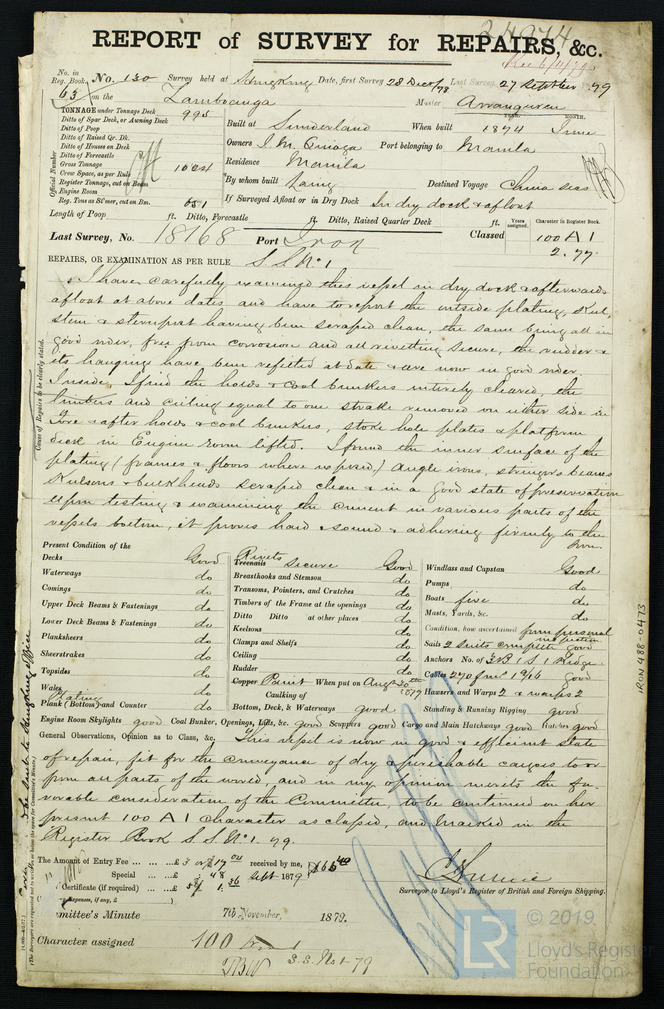 24974
REPORT of SURVEY for REPAIRS, &c.
Rec 6/11/79
No. in Reg. Book. 63 No. 130 Survey held at Hong Kong Date, first Survey 23 Decr/78 Last Survey 27 Septber 1879
on the Zamboanga Master Arrangueren
TONNAGE under Tonnage Deck 995
Ditto of Spar Deck, or Awning Deck
Ditto of Poop
Ditto of Raised Qr. Dk.
Ditto of Houses on Deck
Ditto of Forecastle
Gross Tonnage 1064
Crew Space, as per Rule
Register Tonnage, cut on Beam
Engine Room
Reg. Tons as St'mer, cut on Bm. 651
Official Number
Built at Sunderland When built YEAR. 1874 MONTH. June
Owners I. M. Port belonging to Manila
Residence Manila
By whom built Laing Destined Voyage China seas
If Surveyed Afloat or in Dry Dock In dry dock & afloat
Length of Poop ft. Ditto, Forecastle ft. Ditto, Raised Quarter Deck ft.
Years assigned. Character in Register Book.
Last Survey, No. 18168 Port Iron Classed 100 A 1
2.77
REPAIRS, OR EXAMINATION AS PER RULE S S No 1
Cause of Repairs to be clearly stated.
I have carefully examined this vessel in dry dock & afterwards
afloat at above dates and have to report the outside plating, Keel,
stem & sternpost having been scraped clean, the same being all in
good order, free from corrosion and all rivetting secure, the rudder &
its hanging have been refitted at date & are now in good order.
Inside, I find the holds & coal bunkers entirely cleared, the
limbers and ceiling equal to one strake removed on either side in
Fore & after holds & coal bunkers, stoke hole plates & platform
deck in Engine room lifted. I found the inner surface of the
plating (frames & floors where exposed) angle irons, stringers beams
Keelsons & bulkheads scraped clean & in a good state of preservation
Upon testing & examining the cement in various parts of the
vessels bottom, it proves hard & sound & adhering firmly to the
Iron.
Present Condition of the
Decks Good
Waterways do
Comings do
Upper Deck Beams & Fastenings do
Lower Deck Beams & Fastenings do
Planksheers do
Sheerstrakes do
Topsides do
Wales do
Plating
Plank (Bottom) and Counter do
Rivets
Treenails secure Good
Breasthooks and Stemson do
Transoms, Pointers, and Crutches do
Timbers of the Frame at the openings do
Ditto Ditto at other places do
Keelsons do
Clamps and Shelfs do
Ceiling do
Rudder do
Copper Paint When put on Augt 20th 1879
Caulking of
Bottom, Deck, & Waterways good
Windlass and Capstan Good
Pumps do
Boats five do
Masts, Yards, &c. do
Condition, how ascertained from personal inspection
Sails 2 suits complete good
Anchors No. of 3 B 1 S 1 Kedge
Cables 270 fms 1 9/16 good
Hawsers and Warps 2 & warps 2
Standing & Running Rigging good
Engine Room Skylights good Coal Bunker, Openings, Lids, &c. good Scuppers good Cargo and Main Hatchways good Hatches good
General Observations, Opinion as to Class, &c. This vessel is now in good & efficient state
of repair, fit for the conveyance of dry & perishable cargoes to or
from all parts of the world, and in my opinion merits the fa-
vorable consideration of the Committee, to be continued on her
present 100 A 1 character as classed, and marked in the
Register Book S. S. No 1. 79.
The Amount of Entry Fee £3 or $17.00 received by me,
Special $ 48 Sept 1879
Certificate (if required) 5/ 1.36
Surveyor to Lloyd's Register of British and Foreign Shipping.
Committee's Minute 7th November, 1879.
Character assigned 100 A 1
S.S. No 1-79
IRON 488-0473
© 2019
LR
Lloyd's Register
Foundation